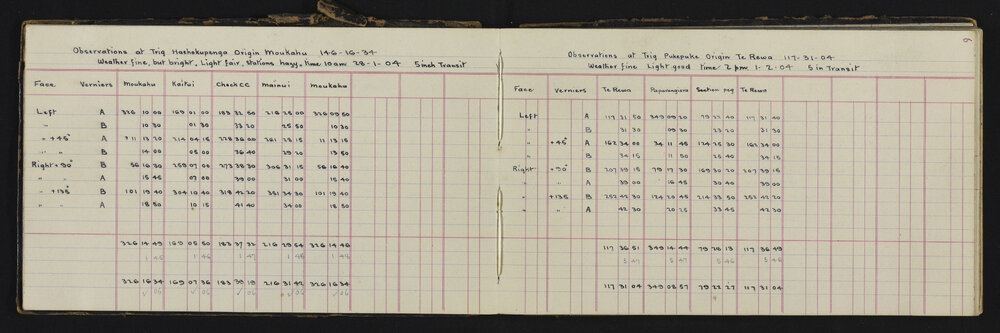 Observations at Trig Hashokupenga Origin Moukahu 146-16-34
Weather fine, but bright, Light fair, stations hazy, time 10am 28-1-04 5 inch Transit
Face Verniers Moukahu Kaitui Check CC Mainui Moukahu
Left A 326 10 00 169 01 00 183 32 50 216 25 00 326 09 50
" B 10 30 01 30 33 20 25 50 10 30
" +45° A 11 13 20 214 04 15 228 36 00 261 28 15 11 13 15
" " B 14 00 05 00 36 40 29 20 13 50
Right +90° B 56 16 30 259 07 00 273 38 30 306 31 15 56 16 40
" " A 15 45 07 00 39 00 31 00 15 40
" +135° B 101 19 40 304 10 40 318 42 20 351 34 30 101 19 40
" " A 18 50 10 15 41 40 34 00 18 50
326 14 49 169 05 50 183 37 32 216 29 54 326 14 46
1 45 1 46 1 47 1 48 1 48
326 16 34 169 07 36 183 39 19 216 31 42 326 16 34
6
Observations at Trig Pukepuke Origin Te Rewa 117-31-04
Weather fine Light good time 2 pm 1-2-04 5 in Transit
Face Verniers Te Rewa Paparangiora Section peg Te Rewa
Left A 117 31 50 349 09 20 79 22 40 117 31 40
" B 31 30 09 30 23 20 31 30
" +45° A 162 34 00 34 11 45 124 25 30 162 34 00
B 34 15 11 50 25 40 34 15
Right +90° B 207 39 15 79 17 30 169 30 20 207 39 15
" " A 39 00 16 45 30 40 39 00
" +135 B 252 42 30 124 20 45 214 33 50 252 42 20
" " A 42 30 20 25 33 45 42 30
117 36 51 349 14 44 79 28 13 117 36 49
5 47 5 47 5 46 5 45
117 31 04 349 08 57 79 22 27 117 31 04